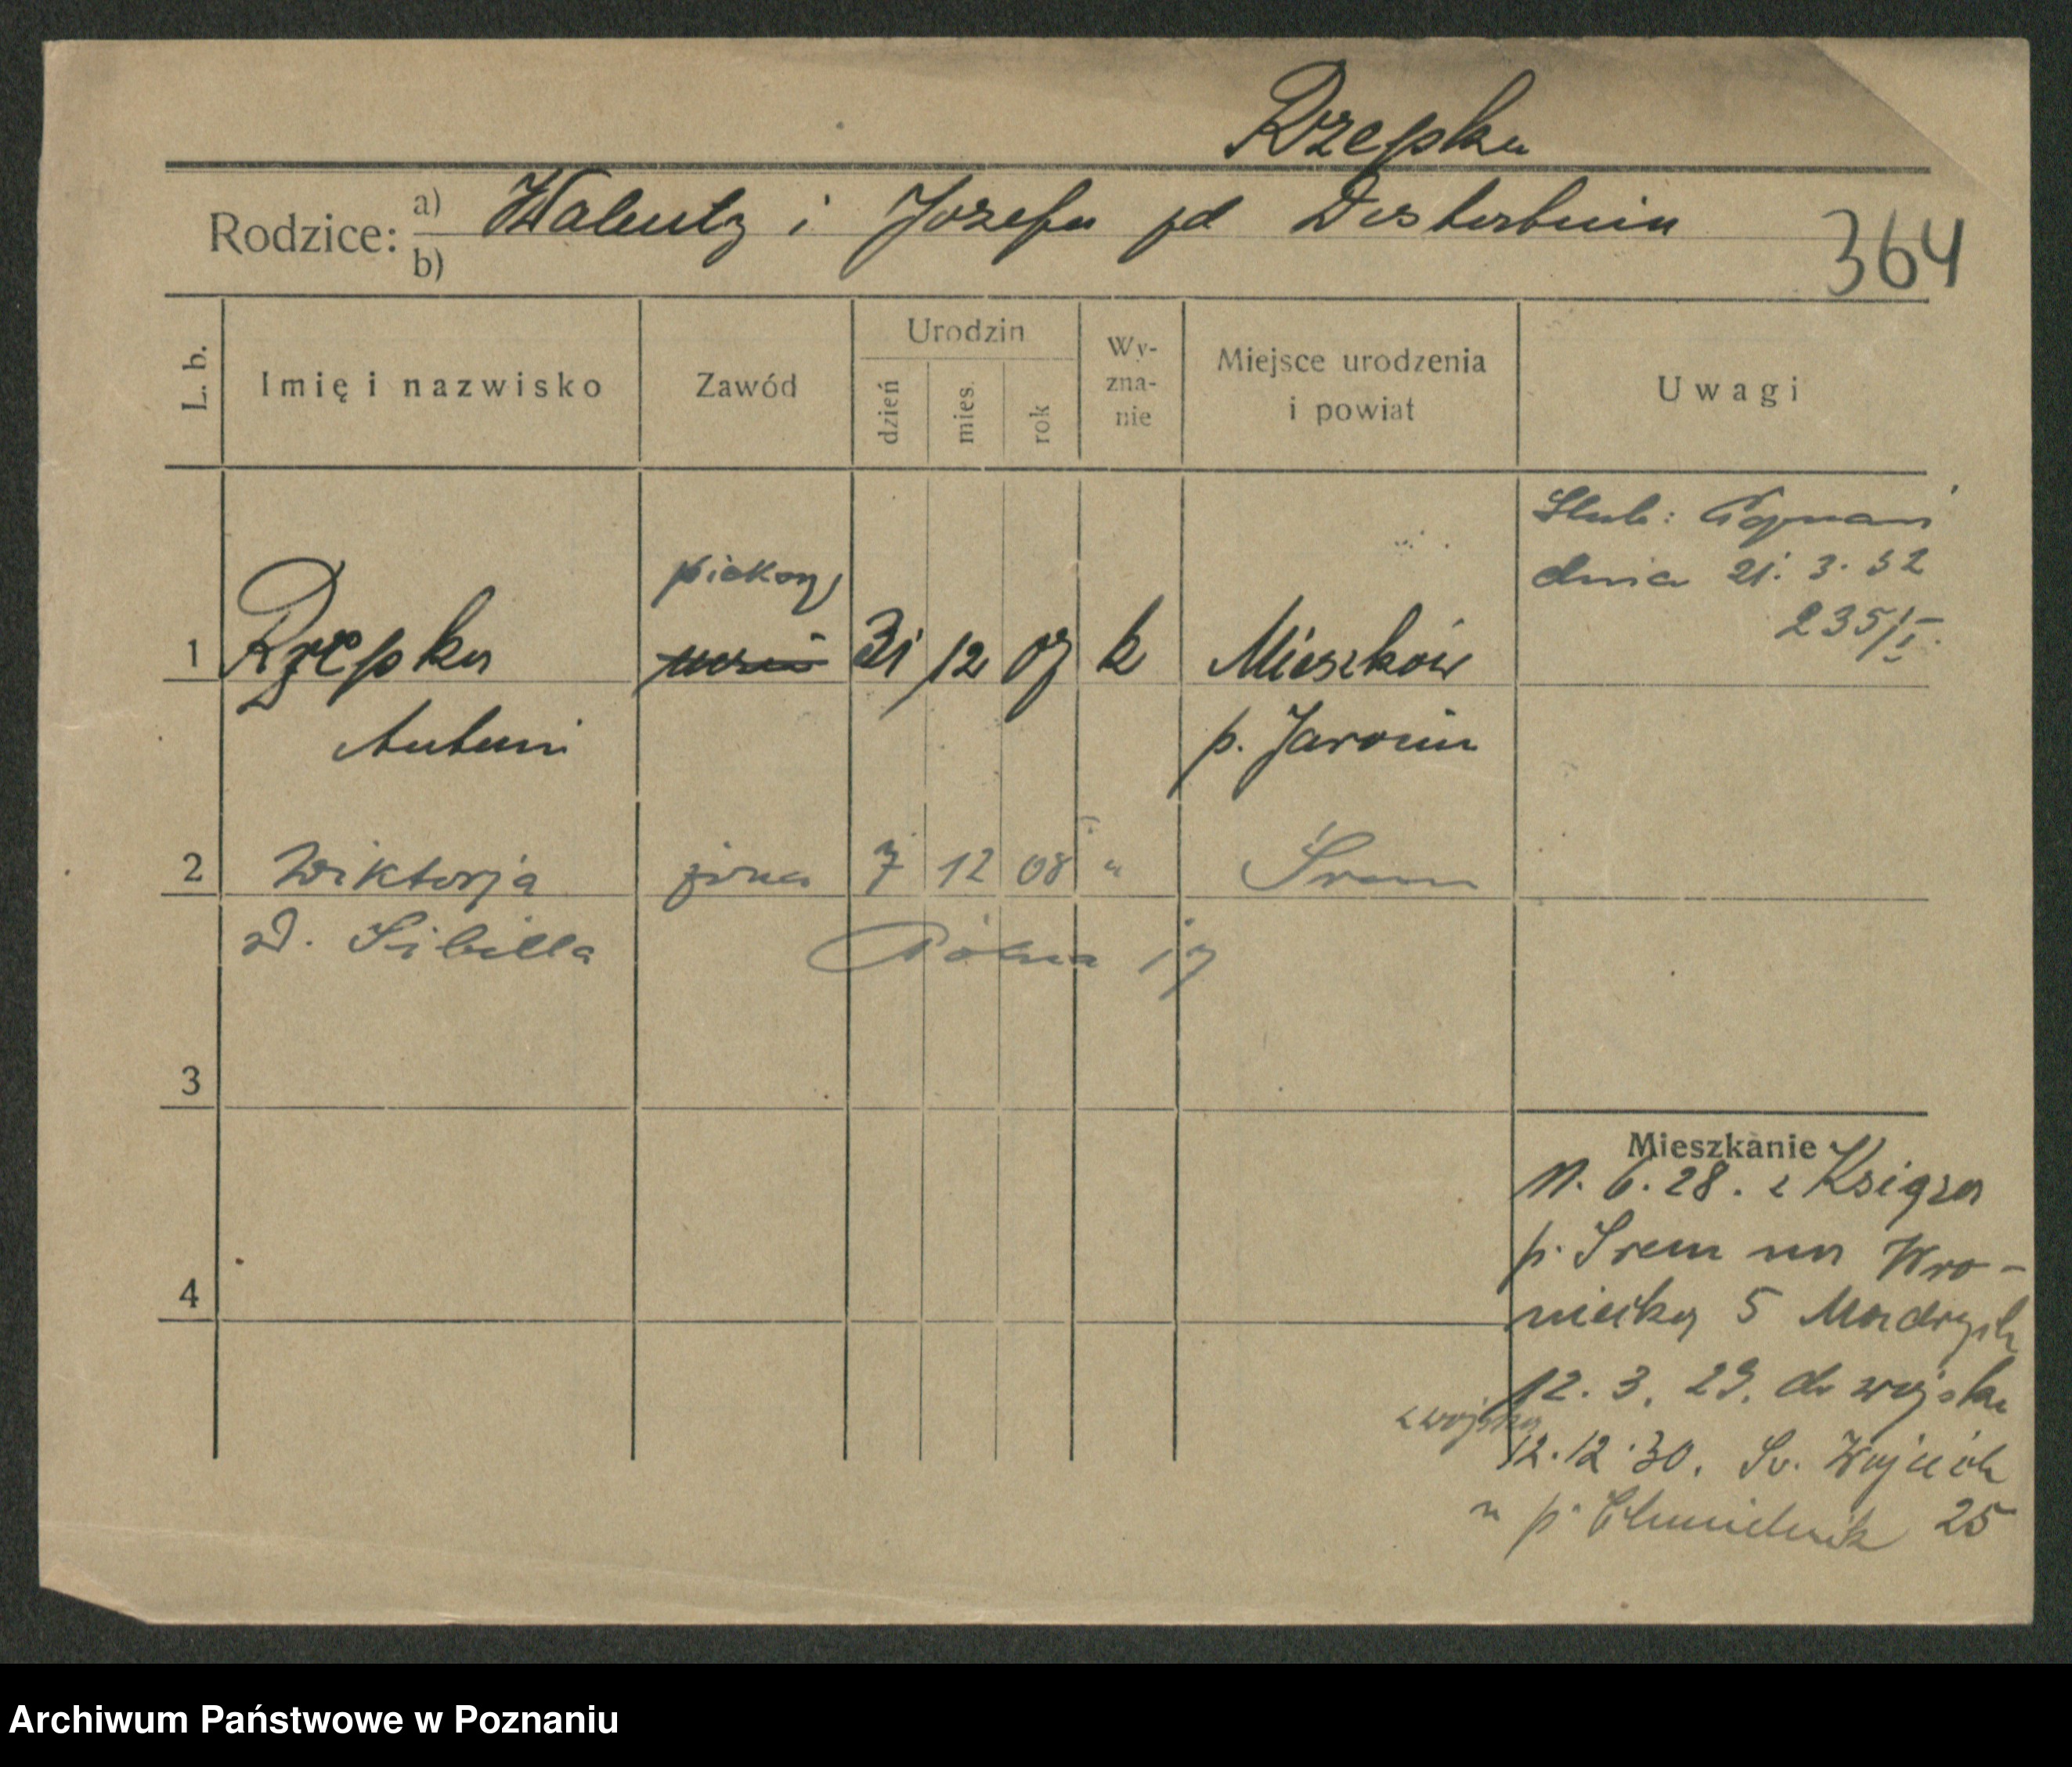 Rzepka
Rodzice: a) Walenty i Józefa
b)
364
L. b.
Imię i nazwisko
Zawód
Urodzin
dzień
mies.
rok
Wy-
zna-
nie
Miejsce urodzenia
i powiat
Uwagi
Ślub: Poznań
dnia 21. 3. 32
235/I.
piekarz
1 Rzepka 31 12 07 k Mieszków
Antoni p. Jarocin
2 Wiktorja żona 7 12 08 " Śrem
d. Sibilla Polna 17
3
Mieszkanie
11. 6. 28. z Książa
p. Śrem na Wro-
4
niecką 5 Mądrych
12. 3. 29. do wojska
z wojska
12. 12. 30. Św. Wojciech
u p. Chmielnik 25
Archiwum Państwowe w Poznaniu